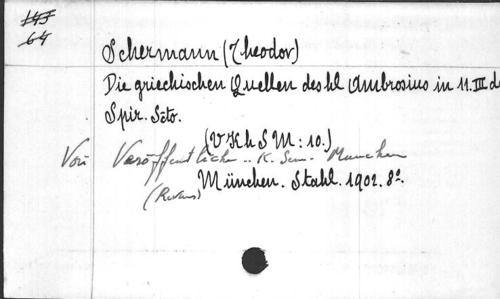 143
64
Schermann (Theodor)
Die griechischen Quellen des hl Ambrosius in ll. III de
Spir. Scto.
(V K h S M : 10.)
Voir Veröffentlichen .. K. Sem. Munchen
München. Stahl. 1902. 8º.